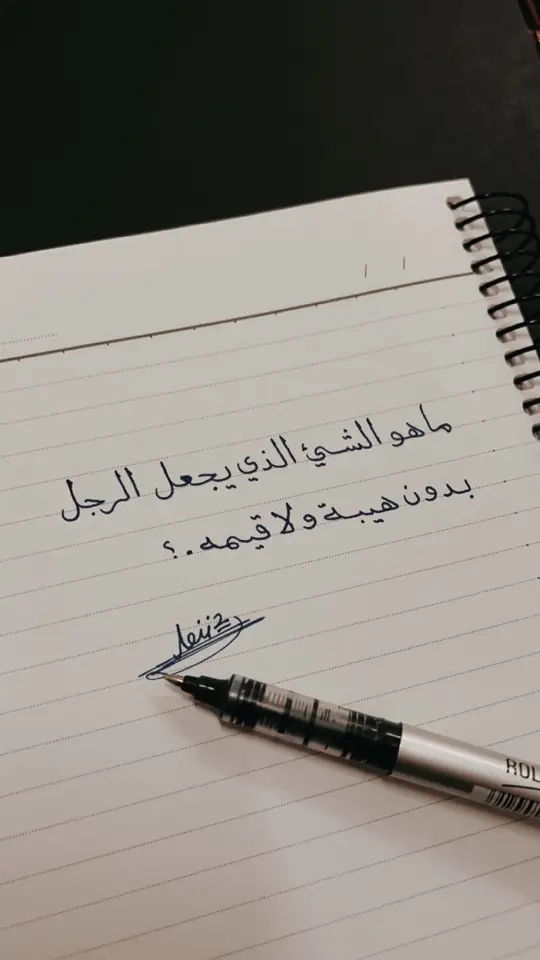 ماهو الشيئ الذي يجعل الرجل
بدون هيبة ولا قيمه.؟
ROL